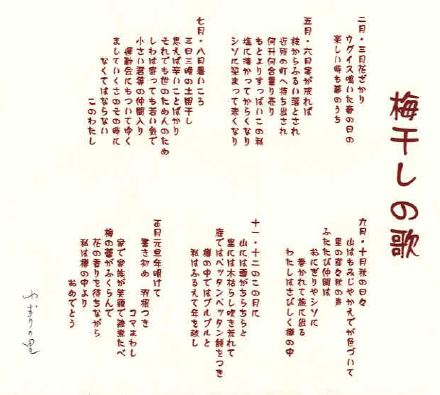 梅干しの歌
二月・三月花ざかり
ウグイス鳴いた春の日の
楽しい時も夢のうち
五月・六月実が成れば
枝からふるい落とされ
近所の町へ持ち出され
何升何合量り売り
もとよりすっぱいこの私
塩に漬かってからくなり
シソに染まって赤くなり
七月・八月暑いころ
三日三晩の土用干し
思えば辛いことばかり
それでも世のため人のため
しわは寄っても若い気で
小さい君等の仲間入り
運動会にもついてゆく
ましていくさのその時に
なくてはならない
このわたし
九月・十月秋の日々
山はもみじやかえでが色づいて
里の家々秋の声
ふたたび仲間は
おにぎりやシソに
巻かれて旅に出る
わたしはさびしく樽の中
十一・十二のこの月に
山には雪がちらちらと
里には木枯らし吹き荒れて
庭ではペッタンペッタン餅をつき
樽の中ではブルブルと
私はふるえて年を越し
正月元旦年明けて
書き初め 羽根つき
コマまわし
家で家族が笑顔で雑煮たべ
梅の蕾がふくらんで
花の香りを待ちながら
私は樽の中より
おめでとう